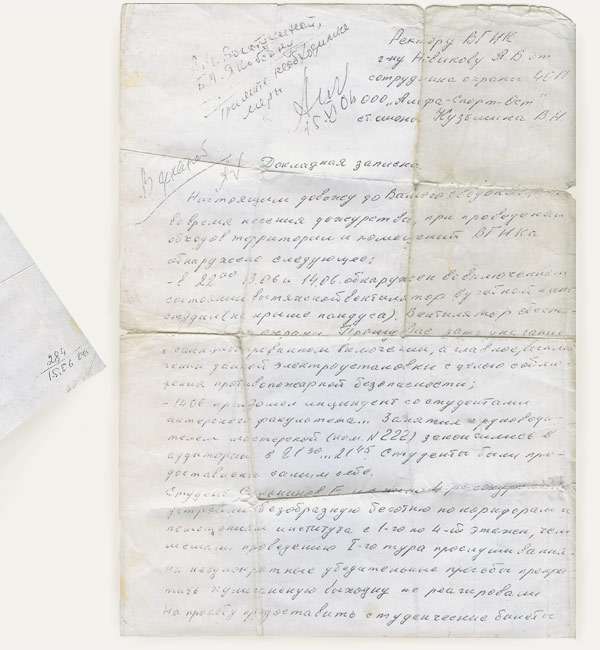 принять необходимые
меры
15.VI.06
Ректору ВГИК
г-ну Новикову А В от
сотрудника охраны ЧОП
ООО "Альфа-Спорт-
Кузьмина В Н
В деканат
Докладная записка
Настоящим довожу до Вашего сведения
во время несения дежурства, при проведении
обходов территории и помещений ВГИКа
обнаружено следующее:
- в 22⁰⁰ 13.06 и 14.06. обнаружен во включенном
состоянии вытяжной вентилятор в учебной
студии (на крыше пандуса). Вентилятор
охраны. Прошу Вас дать указания
о включении, а главное,
данной электроустановки с целью соблю-
дения противопожарной безопасности;
- 14.06 произошел инциндент со студентами
актерского факультета. Занятия с руководи-
телем мастерской (ком. N 222) закончились в
аудитории в 21³⁰...21⁴⁵ Студенты были пре-
доставлены самим себе.
Студент
устроили безобразную беготню по коридорам и
помещениям института с 1-го по 4-ый этажи, чем
мешали проведению I-го тура прослушивания.
На неоднократные убедительные просьбы прекра-
тить хулиганскую выходку не реагировали
На просьбу предоставить студенческие билеты
284
15.06.06